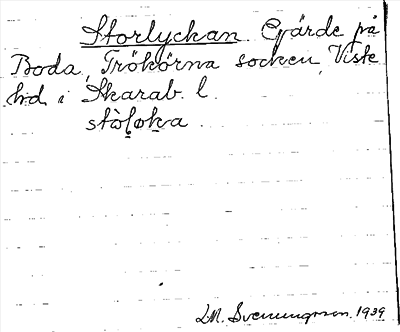 Storlyckan Gärde på
Boda, Trökörna socken, Viste
hd i Skarab. l.
stòḷo̱ka
LM. Svenungsson. 1939